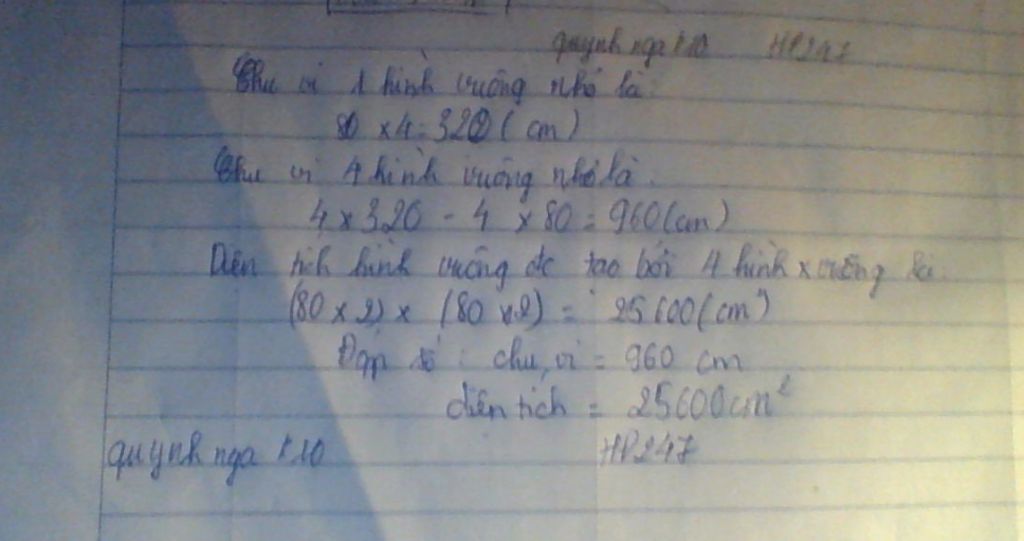 quynh nga k10 HP247
Chu vi 1 hình vuông nhỏ là:
80 x 4 = 320 (cm)
Chu vi 4 hình vuông nhỏ là:
4 x 320 - 4 x 80 = 960 (cm)
Diện tích hình vuông đc tạo bởi 4 hình x vuông là:
(80 x 2) x (80 x 2) = 25600 (cm²)
Đáp số : chu vi = 960 cm
diện tích = 25600 cm²
quynh nga k10 HP247